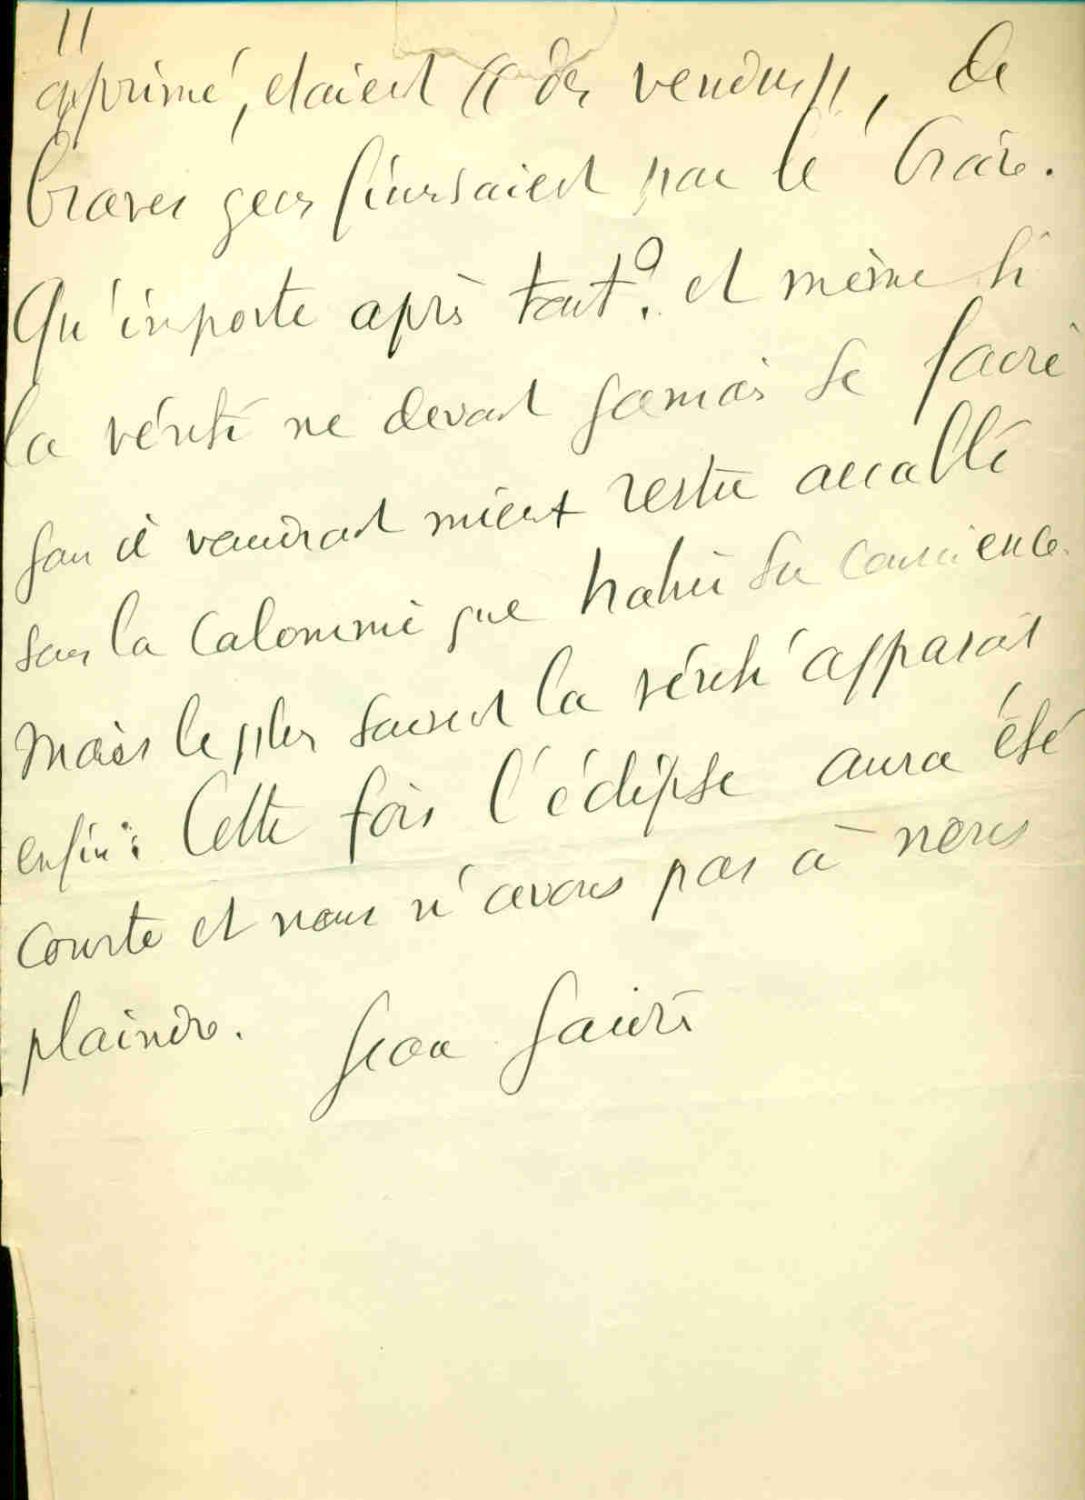 11
opprimé, étaient « des vendus », de
braves gens finissaient par le croire.
Qu'importe après tout ? et même si
la vérité ne devait jamais se faire
jour il vaudrait mieux rester accablé
sous la calomnie que trahir sa conscience.
Mais le plus souvent la vérité apparaît
enfin : Cette fois l'éclipse aura été
courte et nous n'avons pas à nous
plaindre. Jean Jaurès